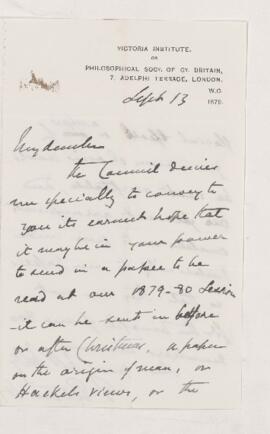 VICTORIA INSTITUTE,
OR
PHILOSOPHICAL SOCY. OF GT. BRITAIN,
7, ADELPHI TERRACE, LONDON,
W.C.
Sept 13 1879.
My dear Sir
the Council desires
me specially to convey to
you its earnest hope that
it may be in your power
to send in a paper to be
read at our 1879-80 Session
- it can be sent in before
or after Christmas, a paper
on the origin of man, or
Hackels views, or the